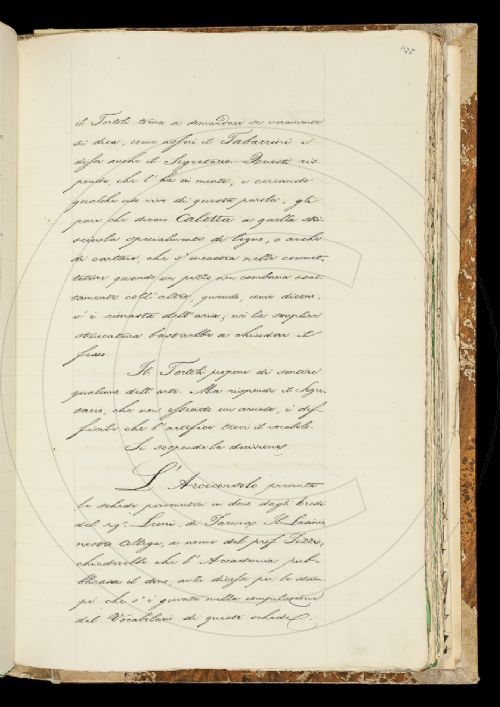 1125
il Tortoli torna a domandare se veramente
si dica, come asserì il Tabarrini e
disse anche il Segretario. Questi ris-
ponde, che l'ha in mente, e cercando
qualche eco viva di questa parola, gli
pare che dicono Caletta a quella stri-
sciuola specialmente di legno, o anche
di cartone, che s'incastra nelle commet-
titure quando un pezzo non combacia esat-
tamente coll'altro, quando, come dicono,
v'è rimasta dell'aria; nè la semplice
stuccatura basterebbe a chiudere il
fesso.
Il Tortoli propone di sentire
qualcuno dell'arte. Ma risponde il Segre-
tario, che non essendo un arnese, è dif-
ficile che l'artefice trovi il vocabolo.
Si sospende la decisione.
L'Arciconsolo presenta
le schede pervenuteci in dono dagli eredi
del sig.
nostro Collega, a nome del prof.
chiederebbe che l'Accademia pub-
blicasse il dono, anche
che s'è giovata nella compilazione
del Vocabolario di queste schede.